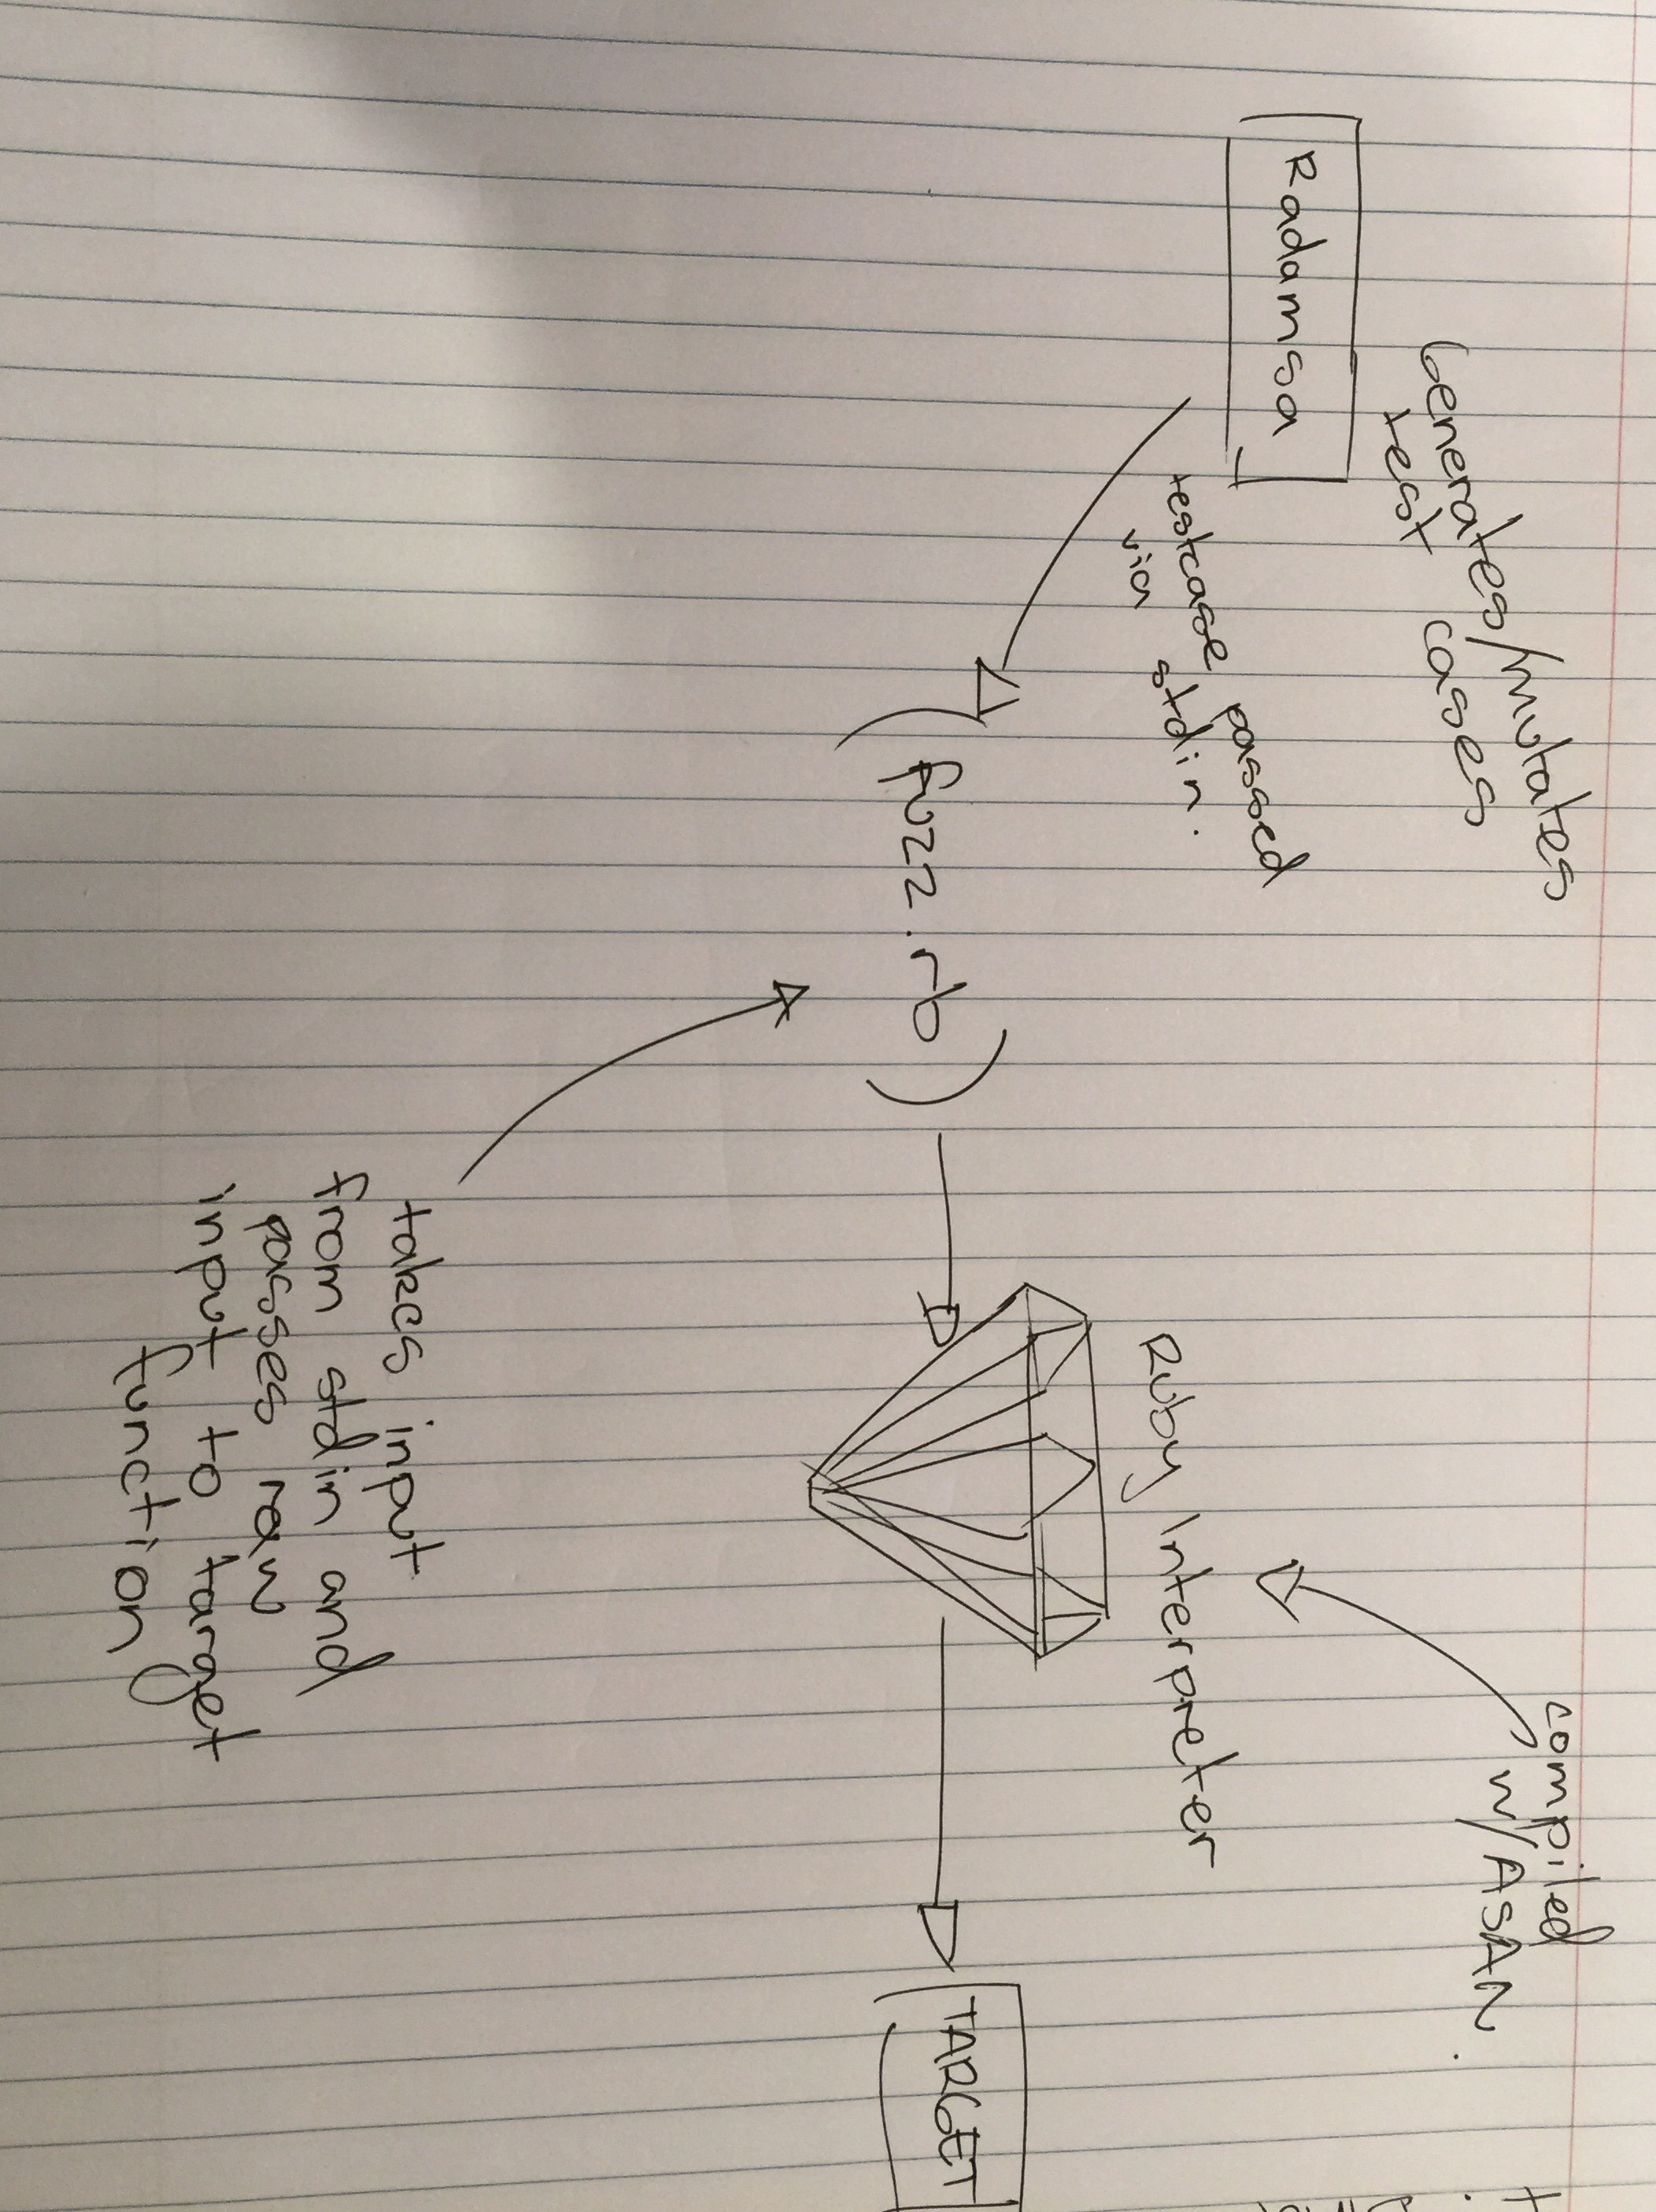 Generates/mutates
test cases
Radamsa
testcase passed
via stdin.
fuzz.rb
takes input
from stdin and
passes raw
input to target
function
compiled
w/ASAN.
Ruby Interpreter
TARGET